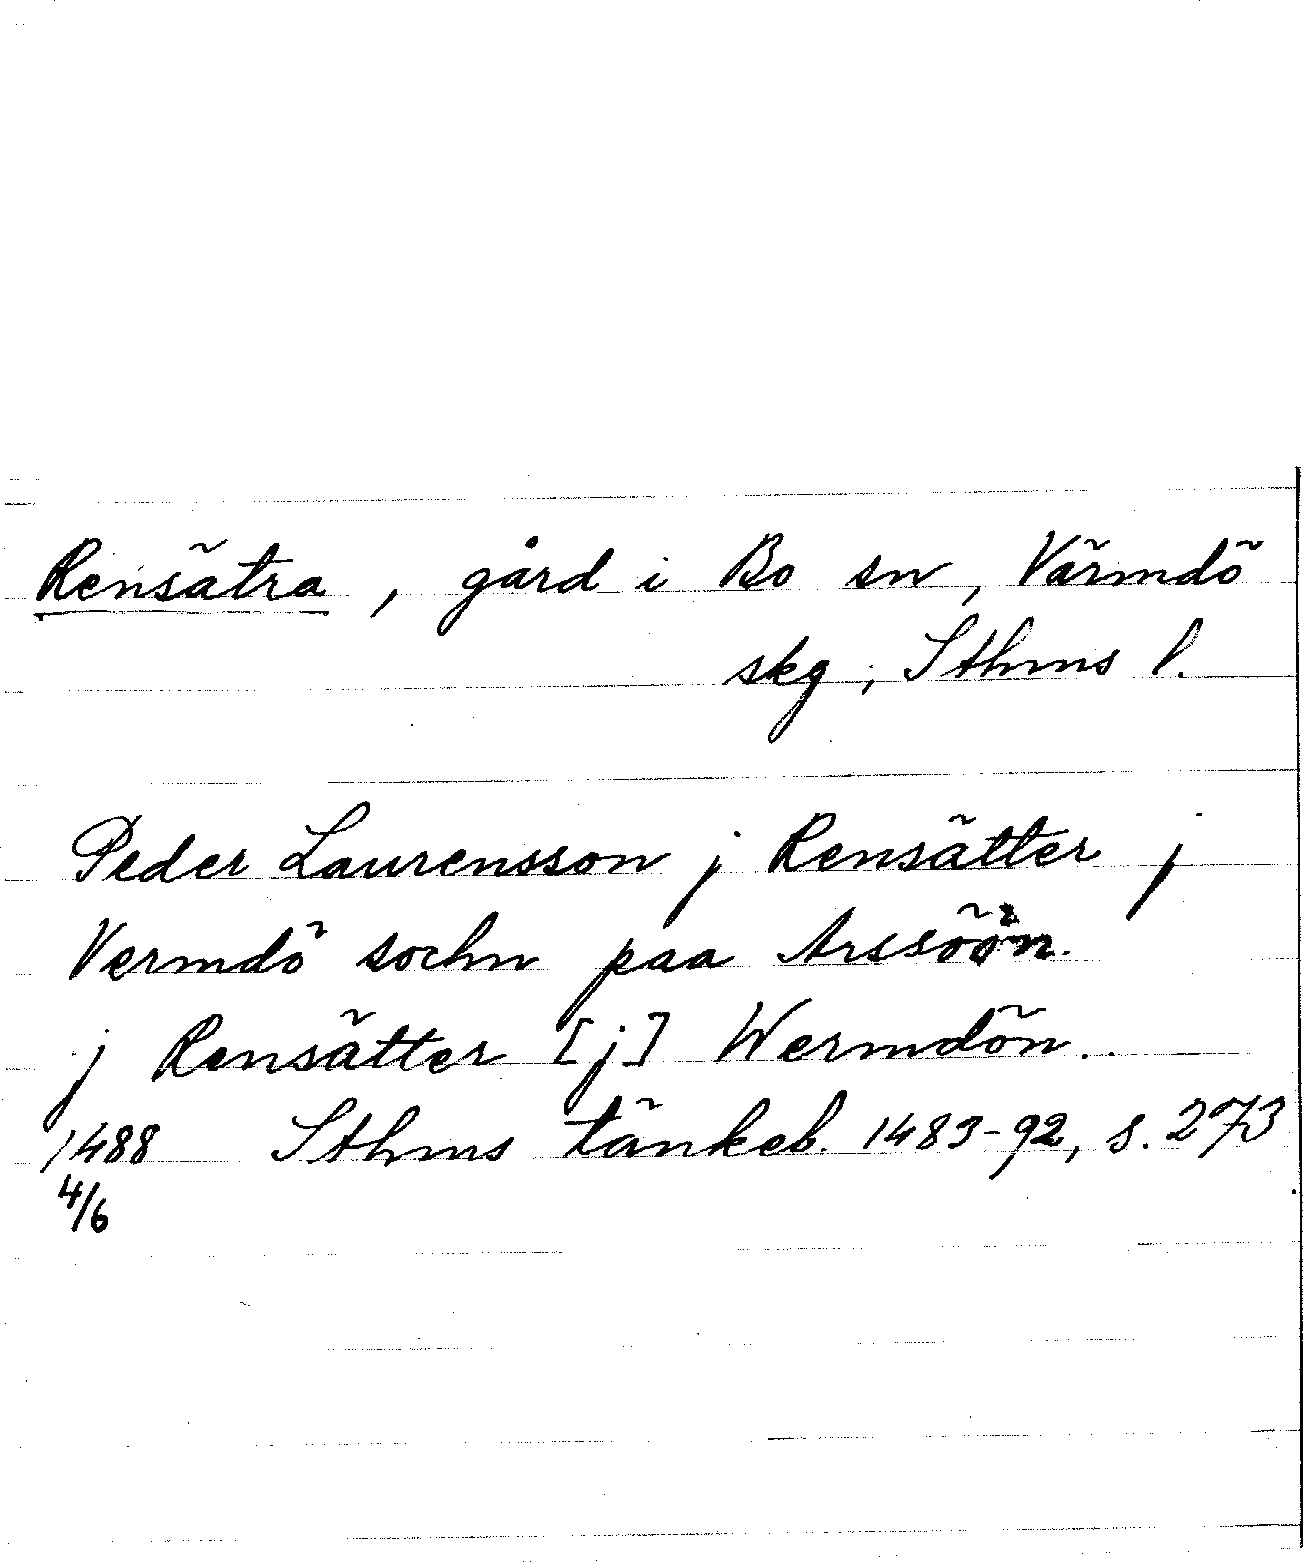 Rensätra, gård i Bo sn, Värmdö
skg, Sthms l.
Peder Laurensson j Rensätter j
Vermdö sochn paa Arssöön.
j Rensätter [j] Wermdön.
1488 Sthms tänkeb. 1483-92, s. 273
4/6